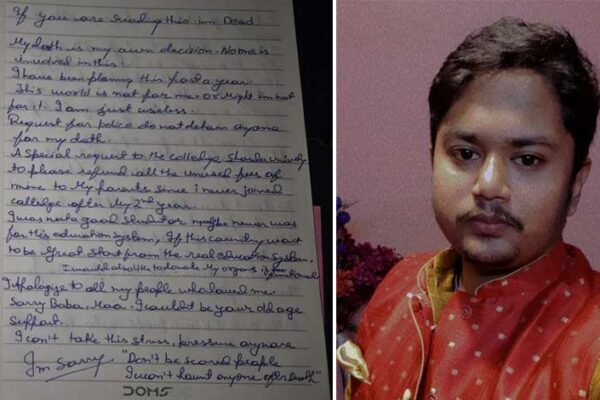 If you are reading this im Dead.
My dath is my own decision. No one is
invloved in this.
I have been planny this past a year
This world is not for me. or Might im not
for it. I am just useless.
Request for police do not detain anyone
for my dath.
A special request to the colledge Sharda
to please refund all the unused fees of
mine to My parents since i never joined
colledge after My 2nd year.
I was not a good student or maybe never was
for this education system, If this country want
to be Great. Start from the real education System.
I would also like to donate My organs if
I Apologise to all my people who loved me
Sorry Baba, Maa. I couldn't be your old age
support.
I can't take this stress, pressure anymore
Im Sorry. "Don't be scared people
I won't haunt anyone after Death"
DOMS